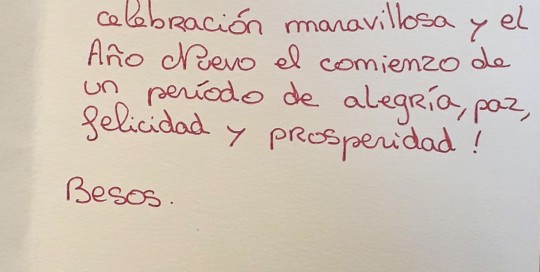 celebración maravillosa y el
Año Nuevo el comienzo de
un período de alegría, paz,
felicidad y prosperidad!
Besos.